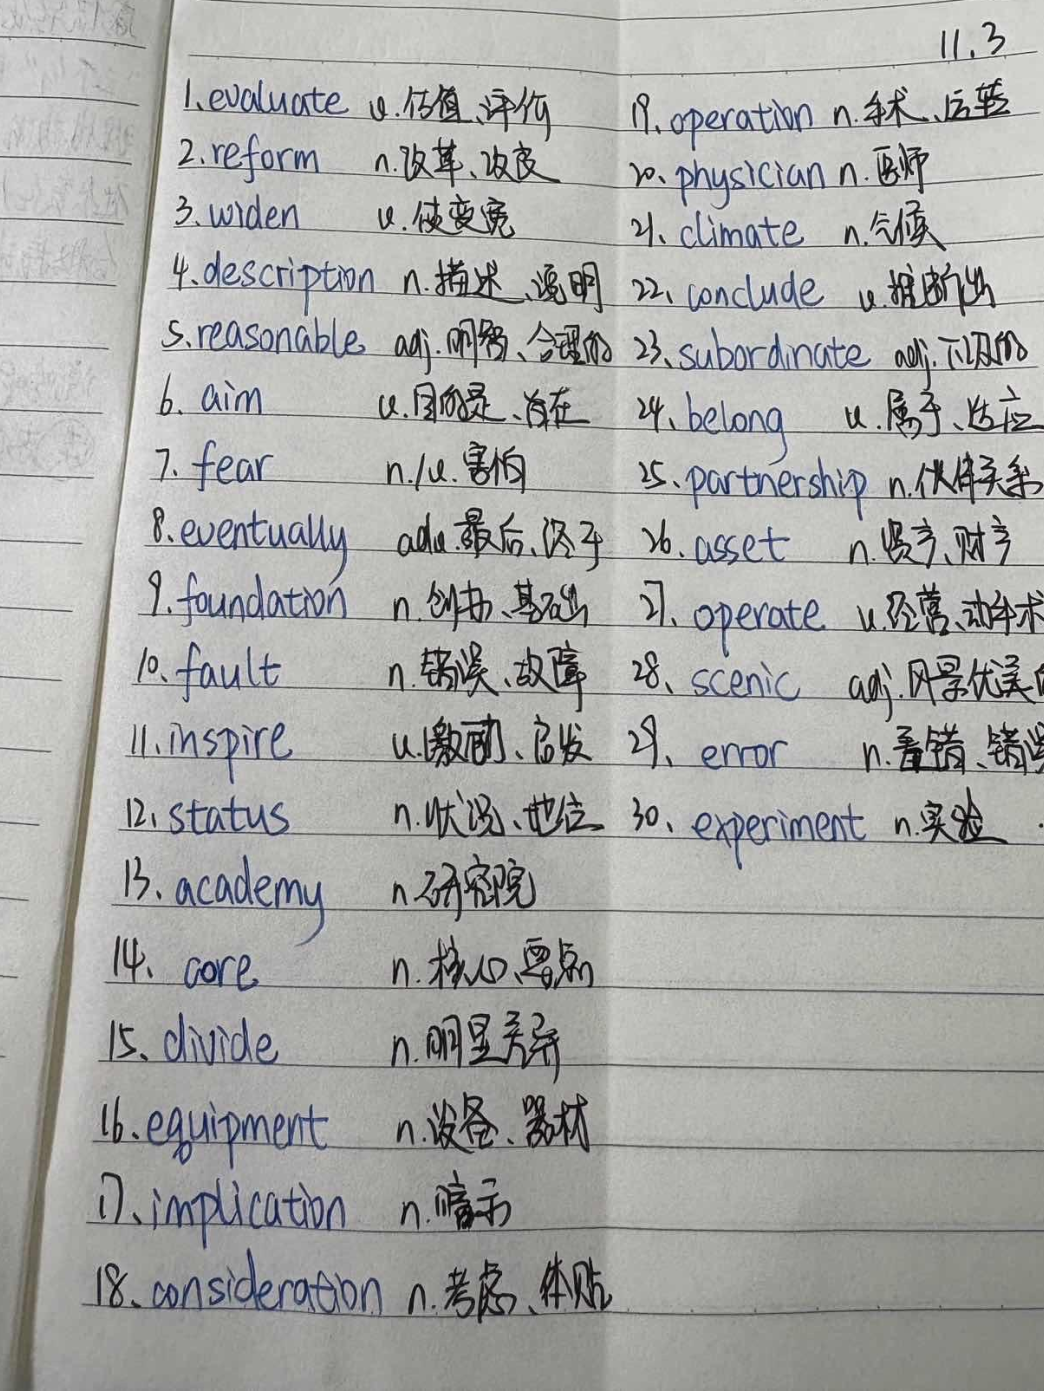 11.3
1.evaluate v.估值、评价
2.reform n.改革、改良
3.widen v.使变宽
4.description n.描述、说明
5.reasonable adj.明智、合理的
6.aim v.目的是、旨在
7.fear n./v.害怕
8.eventually adv.最后、终于
9.foundation n.创办、基础
10.fault n.错误、故障
11.inspire v.激励、启发
12.status n.状况、地位
13.academy n.研究院
14.core n.核心、要点
15.divide n.明显差异
16.equipment n.设备、器材
17.implication n.暗示
18.consideration n.考虑、体贴
19.operation n.手术、运转
20.physician n.医师
21.climate n.气候
22.conclude v.推断出
23.subordinate adj.下级的
24.belong v.属于、适应
25.partnership n.伙伴关系
26.asset n.资产、财产
27.operate v.经营、动手术
28.scenic adj.风景优美的
29.error n.看错、错误
30.experiment n.实验